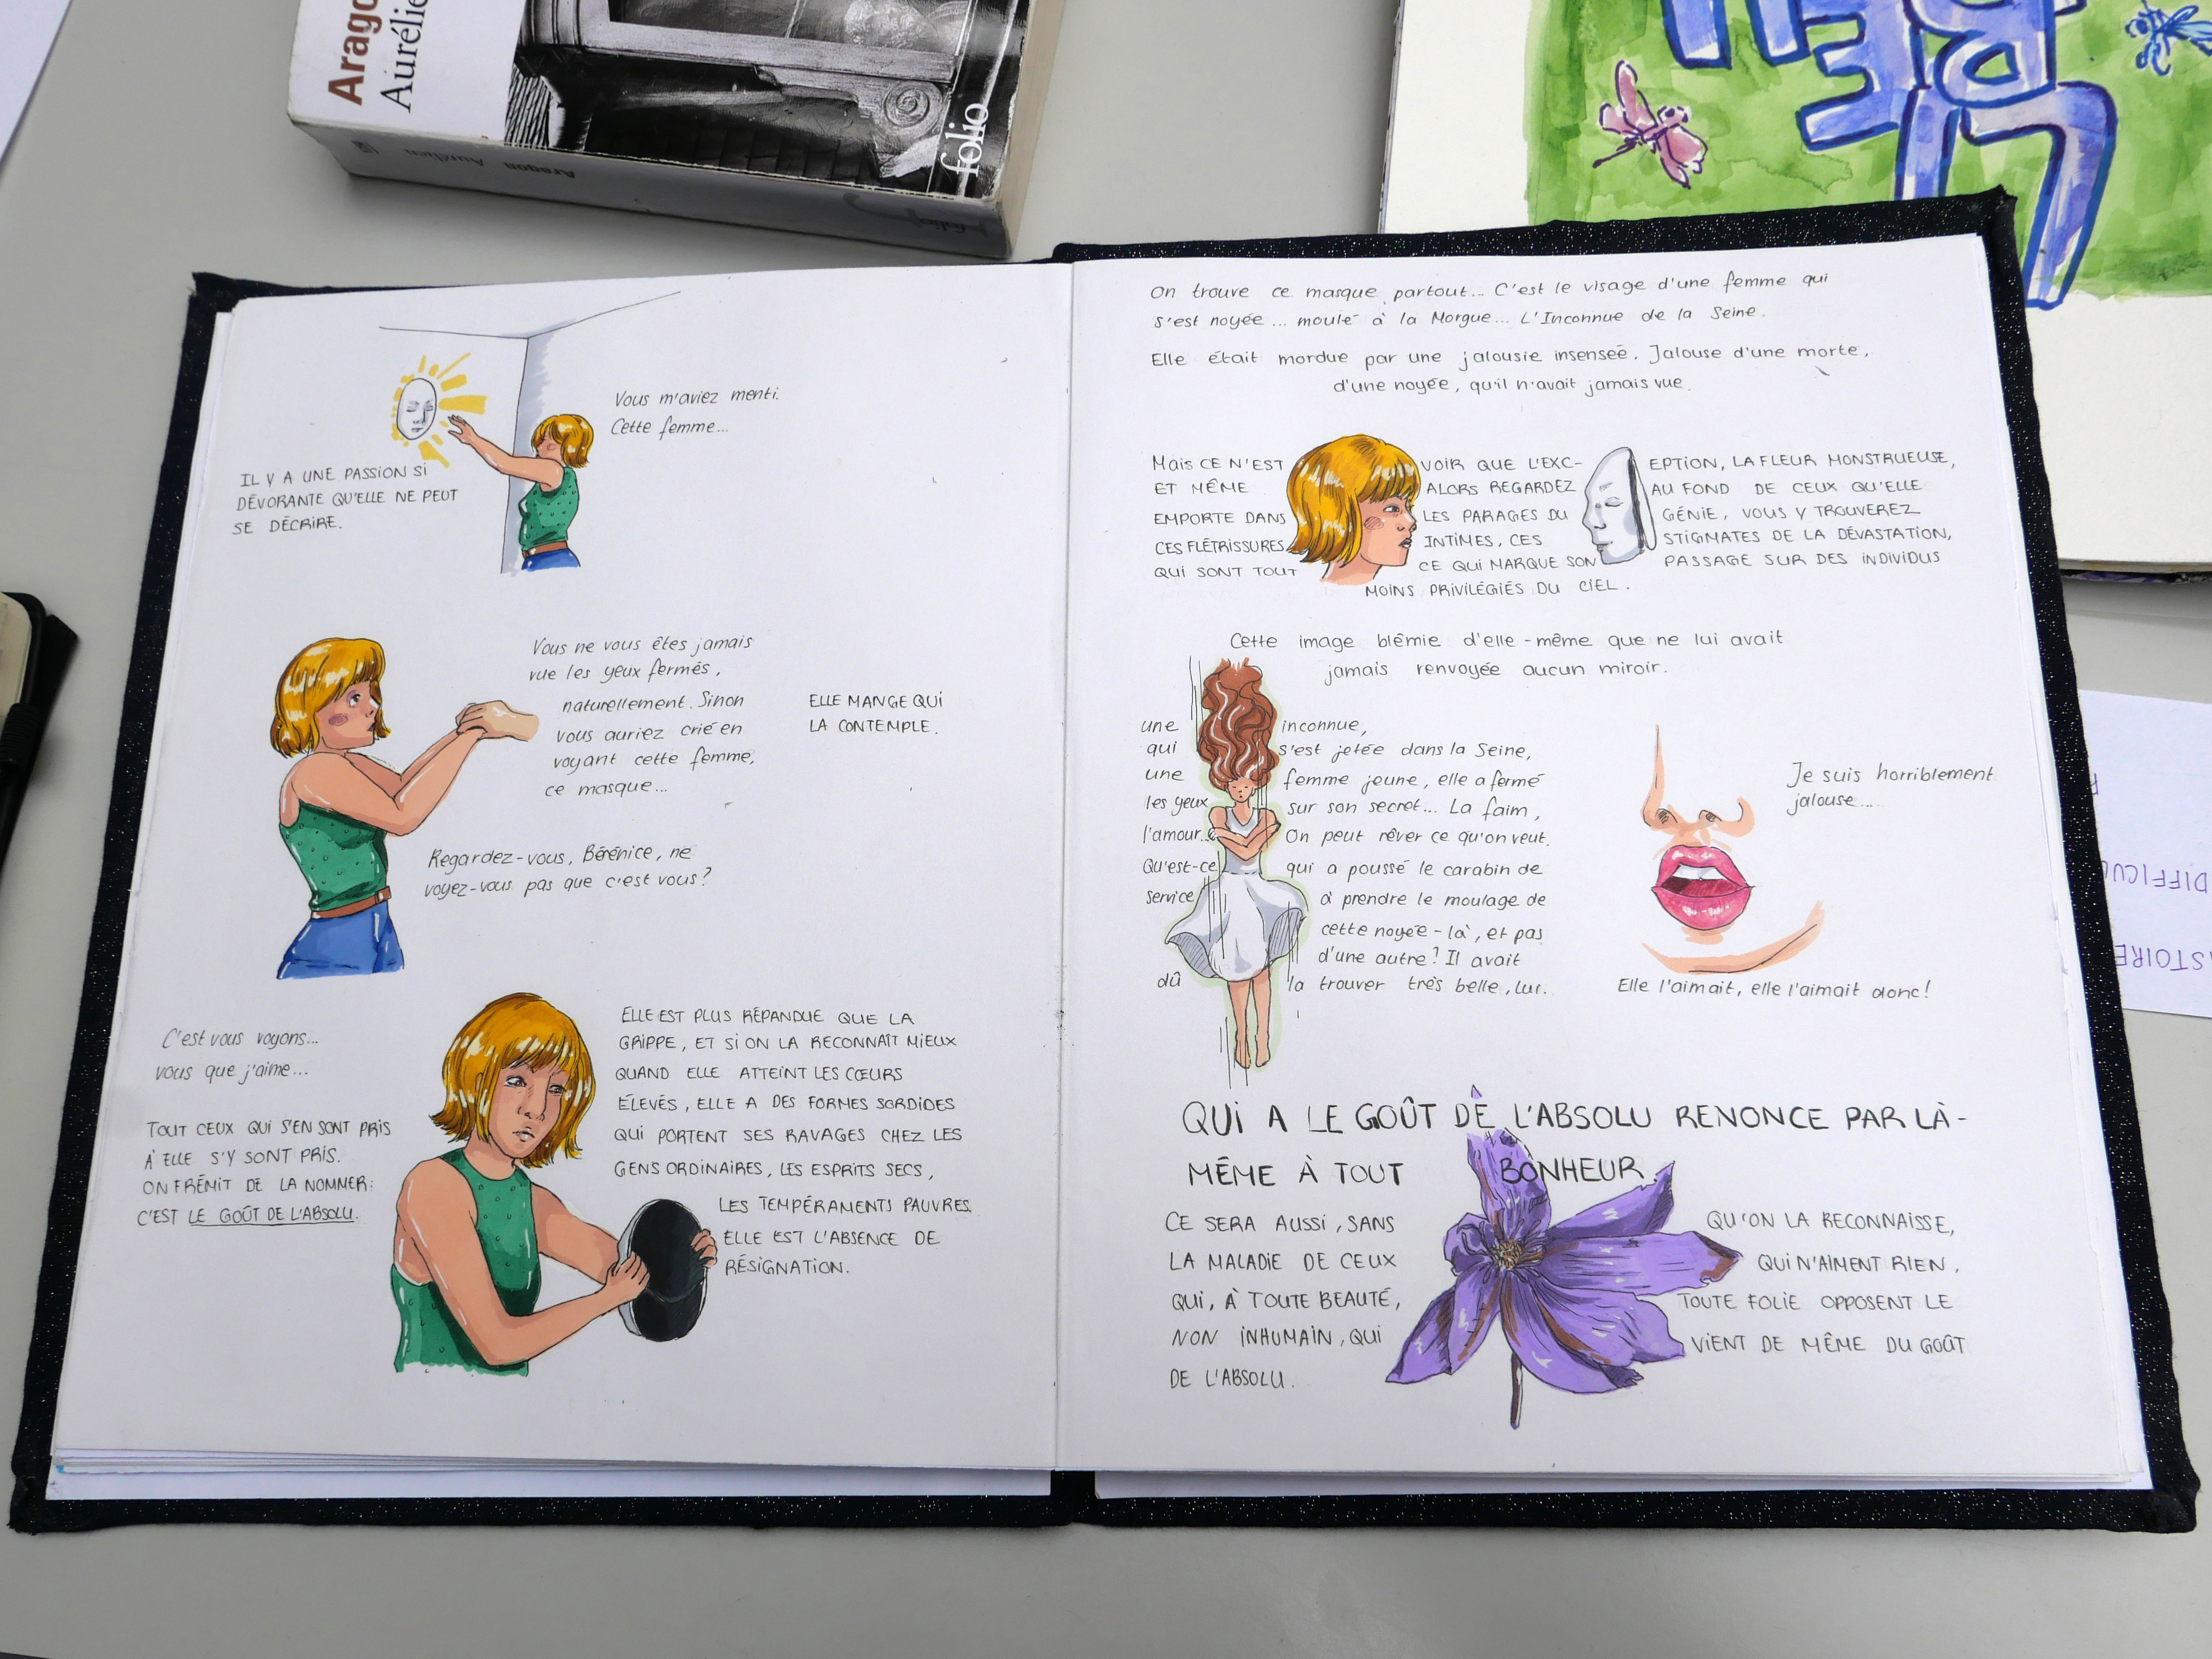 Arago
Aurélie
folio
Aragon Aurélien
Vous m'aviez menti.
Cette femme...
IL Y A UNE PASSION SI
DÉVORANTE QU'ELLE NE PEUT
SE DÉCRIRE.
Vous ne vous êtes jamais
vue les yeux fermés,
naturellement. Sinon
vous auriez crié en
voyant cette femme,
ce masque...
ELLE MANGE QUI
LA CONTEMPLE.
Regardez-vous, Bérénice, ne
voyez-vous pas que c'est vous?
C'est vous voyons...
vous que j'aime...
TOUT CEUX QUI S'EN SONT PRIS
À ELLE S'Y SONT PRIS.
ON FRÉMIT DE LA NOMMER:
C'EST LE GOÛT DE L'ABSOLU.
ELLE EST PLUS RÉPANDUE QUE LA
GRIPPE, ET SI ON LA RECONNAÎT MIEUX
QUAND ELLE ATTEINT LES CŒURS
ÉLEVÉS, ELLE A DES FORMES SORDIDES
QUI PORTENT SES RAVAGES CHEZ LES
GENS ORDINAIRES, LES ESPRITS SECS,
LES TEMPÉRAMENTS PAUVRES.
ELLE EST L'ABSENCE DE
RÉSIGNATION.
On trouve ce masque partout... C'est le visage d'une femme qui
s'est noyée... moulé à la Morgue... L'Inconnue de la Seine.
Elle était mordue par une jalousie insensée. Jalouse d'une morte,
d'une noyée, qu'il n'avait jamais vue.
Mais CE N'EST VOIR QUE L'EXC-EPTION, LA FLEUR MONSTRUEUSE,
ET MÊME ALORS REGARDEZ AU FOND DE CEUX QU'ELLE
EMPORTE DANS LES PARAGES DU GÉNIE, VOUS Y TROUVEREZ
CES FLÉTRISSURES INTIMES, CES STIGMATES DE LA DÉVASTATION,
QUI SONT TOUT CE QUI MARQUE SON PASSAGE SUR DES INDIVIDUS
MOINS PRIVILÉGIÉS DU CIEL.
Cette image blêmie d'elle-même que ne lui avait
jamais renvoyée aucun miroir.
une inconnue,
qui s'est jetée dans la Seine,
une femme jeune, elle a fermé
les yeux sur son secret... La faim,
l'amour... On peut rêver ce qu'on veut.
Qu'est-ce qui a poussé le carabin de
service à prendre le moulage de
cette noyée-là, et pas
d'une autre? Il avait
dû la trouver très belle, lui.
Je suis horriblement
jalouse...
Elle l'aimait, elle l'aimait donc!
QUI A LE GOÛT DE L'ABSOLU RENONCE PAR LÀ-
MÊME À TOUT BONHEUR.
CE SERA AUSSI, SANS QU'ON LA RECONNAISSE,
LA MALADIE DE CEUX QUI N'AIMENT RIEN,
QUI, À TOUTE BEAUTÉ, TOUTE FOLIE OPPOSENT LE
NON INHUMAIN, QUI VIENT DE MÊME DU GOÛT
DE L'ABSOLU.
DIFFICU
STOIRE